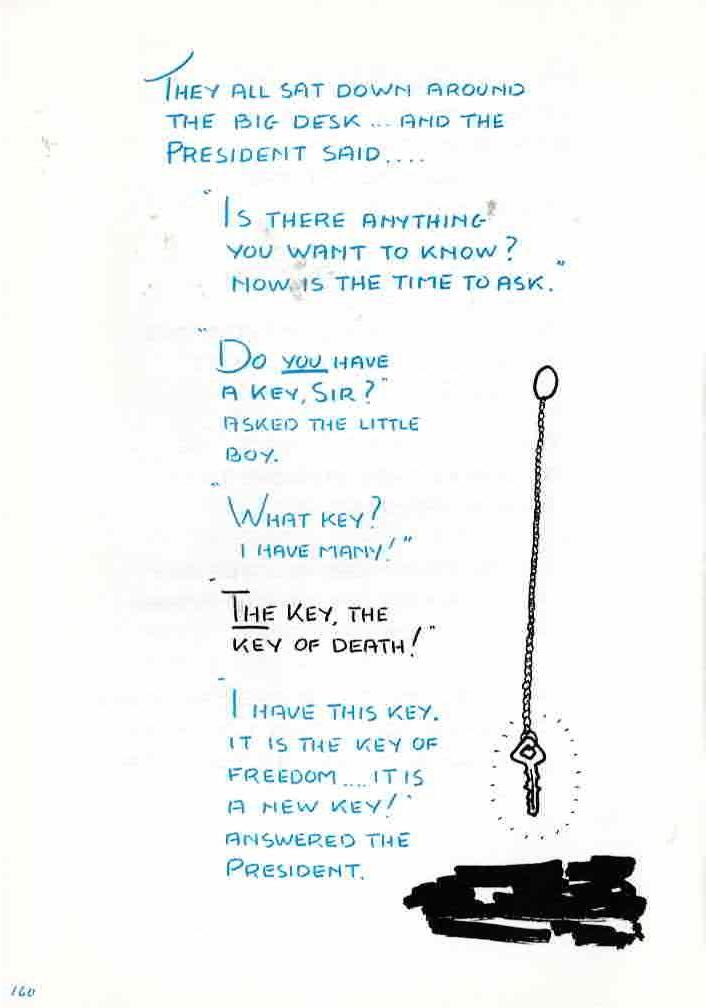 THEY ALL SAT DOWN AROUND
THE BIG DESK... AND THE
PRESIDENT SAID....
"IS THERE ANYTHING
YOU WANT TO KNOW?
NOW IS THE TIME TO ASK."
"DO YOU HAVE
A KEY, SIR?"
ASKED THE LITTLE
BOY.
"WHAT KEY?
I HAVE MANY!"
"THE KEY, THE
KEY OF DEATH!"
"I HAVE THIS KEY.
IT IS THE KEY OF
FREEDOM....IT IS
A NEW KEY!"
ANSWERED THE
PRESIDENT.
160